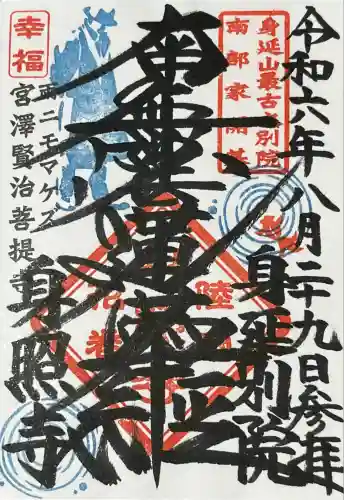 令和六年八月二十九日参拝
身延山最古の別院
南部家開基
身延別院
南無妙法蓮華経
幸福
雨ニモマケズ
宮澤賢治菩提寺
身照寺